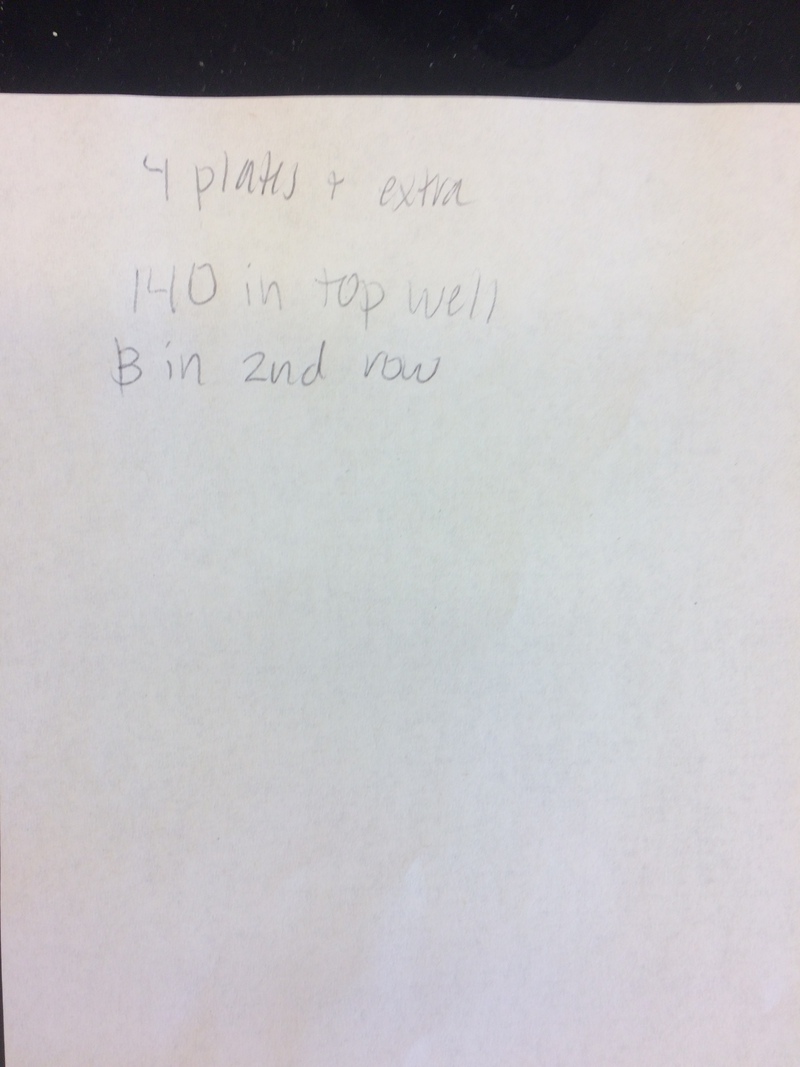 4 plates + extra
140 in top well
B in 2nd row